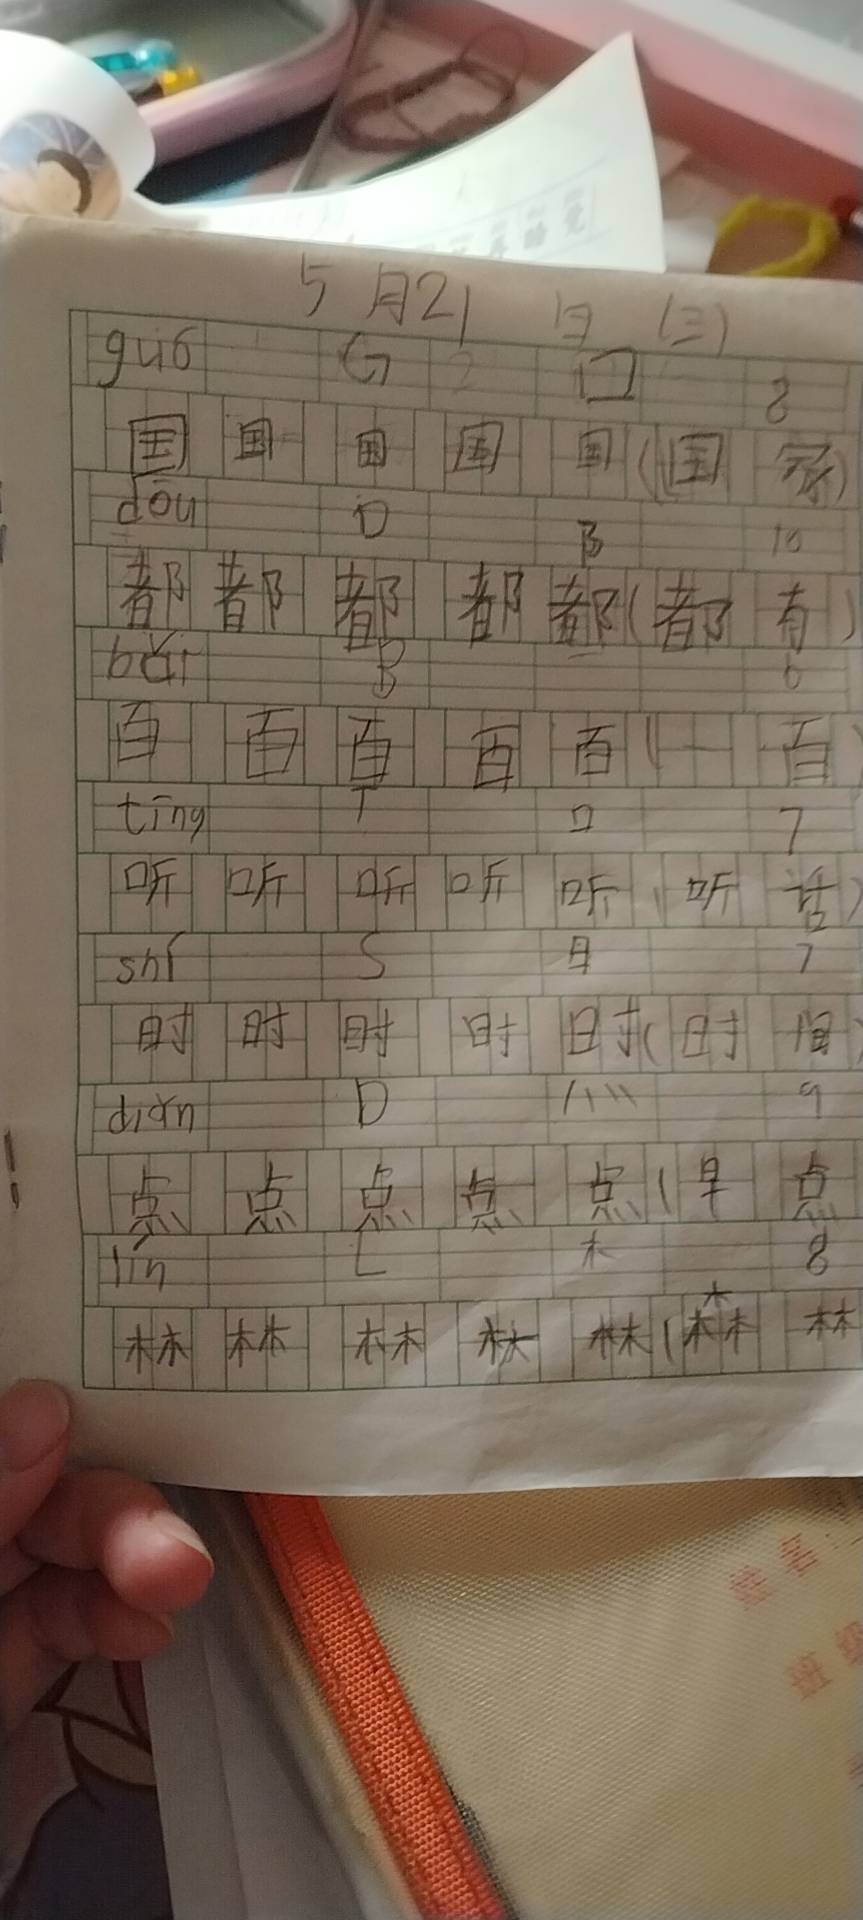 5月21日 (三)
guó G 口 8
国 国 国 国 国 (国 家)
dōu D 阝 10
都 都 都 都 都 (都 有)
bǎi B 一 6
百 百 百 百 百 (一 百)
tīng T 口 7
听 听 听 听 听 (听 话)
shí S 日 7
时 时 时 时 时 (时 间)
diǎn D 灬 9
点 点 点 点 点 (早 点
lín L 木 8
林 林 林 林 林 (森 林
姓名:
班级